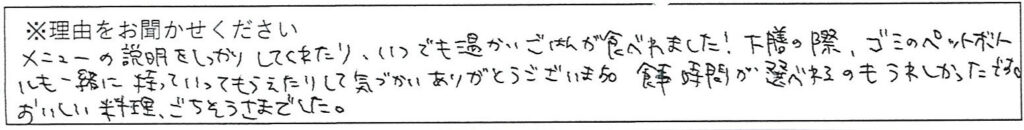 ※理由をお聞かせください
メニューの説明をしっかりしてくれたり、いつでも温かいごはんが食べれました！下膳の際、ゴミのペットボト
ルも一緒に持っていってもらえたりして気づかいありがとうございます。食事時間が選べれるのもうれしかったです。
おいしい料理、ごちそうさまでした。